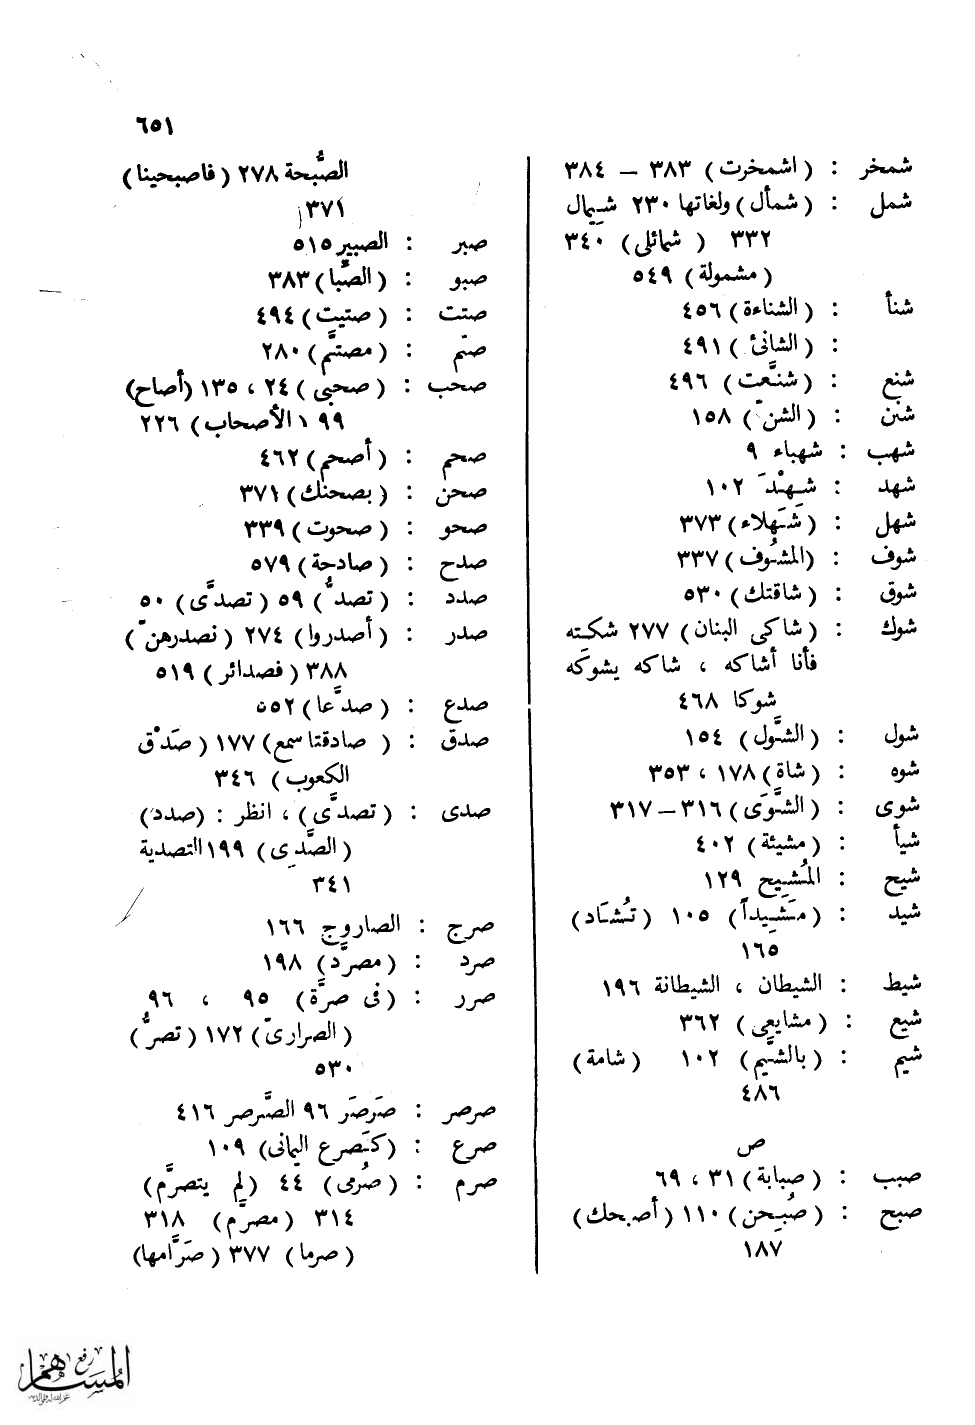 ٦٥١
شمخر : ( اشمخرت ) ٣٨٣ – ٣٨٤
شمل : ( شمأل ) ولغاتها ٢٣٠ شيمال
٣٣٢ ( شمائلى ) ٣٤٠
( مشمولة ) ٥٤٩
شنأ : ( الشناءة ) ٤٥٦
: ( الشانئ ) ٤٩١
شنع : ( شنَّعت ) ٤٩٦
شنن : ( الشنّ ) ١٥٨
شهب : شهباء ٩
شهد : شِهِدَ ١٠٢
شهل : ( شَهلاء ) ٣٧٣
شوف : ( المشُوف ) ٣٣٧
شوق : ( شاقتك ) ٥٣٠
شوك : ( شاكى البنان ) ٢٧٧ شكته
فأنا أشاكه ، شاكه يشوكه
شوكا ٤٦٨
شول : ( الشَّول ) ١٥٤
شوه : ( شاة ) ١٧٨ ، ٣٥٣
شوى : ( الشَّوَى ) ٣١٦ – ٣١٧
شيأ : ( مشيئة ) ٤٠٢
شيح : المُشِيح ١٢٩
شيد : ( مَشِيداً ) ١٠٥ ( تُشَاد )
١٦٥
شيط : الشيطان ، الشيطانة ١٩٦
شيع : ( مشايعى ) ٣٦٢
شيم : ( بالشِّيَم ) ١٠٢ ( شامة )
٤٨٦
ص
صبب : ( صبابة ) ٣١ ، ٦٩
صبح : ( صُبِحن ) ١١٠ ( أصبحك )
١٨٧
الصُّبحة ٢٧٨ ( فاصبحينا )
٣٧١
صبر : الصبير ٥١٥
صبو : ( الصِّبا ) ٣٨٣
صتت : ( صتيت ) ٤٩٤
صتم : ( مصتَّم ) ٢٨٠
صحب : ( صحبى ) ٢٤ ، ١٣٥ ( أصاح )
٩٩ ( الأصحاب ) ٢٢٦
صحم : ( أصحم ) ٤٦٢
صحن : ( بصحنك ) ٣٧١
صحو : ( صحوت ) ٣٣٩
صدح : ( صادحة ) ٥٧٩
صدد : ( تصدُّ ) ٥٩ ( تصدَّى ) ٥٠
صدر : ( أصدروا ) ٢٧٤ ( نصدرهنّ )
٣٨٨ ( فصدائر ) ٥١٩
صدع : ( صدَّعا ) ٥٥٢
صدق : ( صادقتا سمع ) ١٧٧ ( صَدْق
الكعوب ) ٣٤٦
صدى : ( تصدَّى ) ، انظر : ( صدد )
( الصَّدِى ) ١٩٩ التصدية
٣٤١
صرج : الصاروج ١٦٦
صرد : ( مصرَّد ) ١٩٨
صرر : ( فى صرَّة ) ٩٥ ، ٩٦
( الصرارىّ ) ١٧٢ ( تصرُّ )
٥٣٠
صرصر : صَرصَر ٩٦ الصَّرصر ٤١٦
صرع : ( كنَصرع اليمانى ) ١٠٩
صرم : ( صُرمى ) ٤٤ ( لم يتصرَّم )
٣١٤ ( مصرَّم ) ٣١٨
( صرما ) ٣٧٧ ( صَرَّامها )
رفع
المساهم